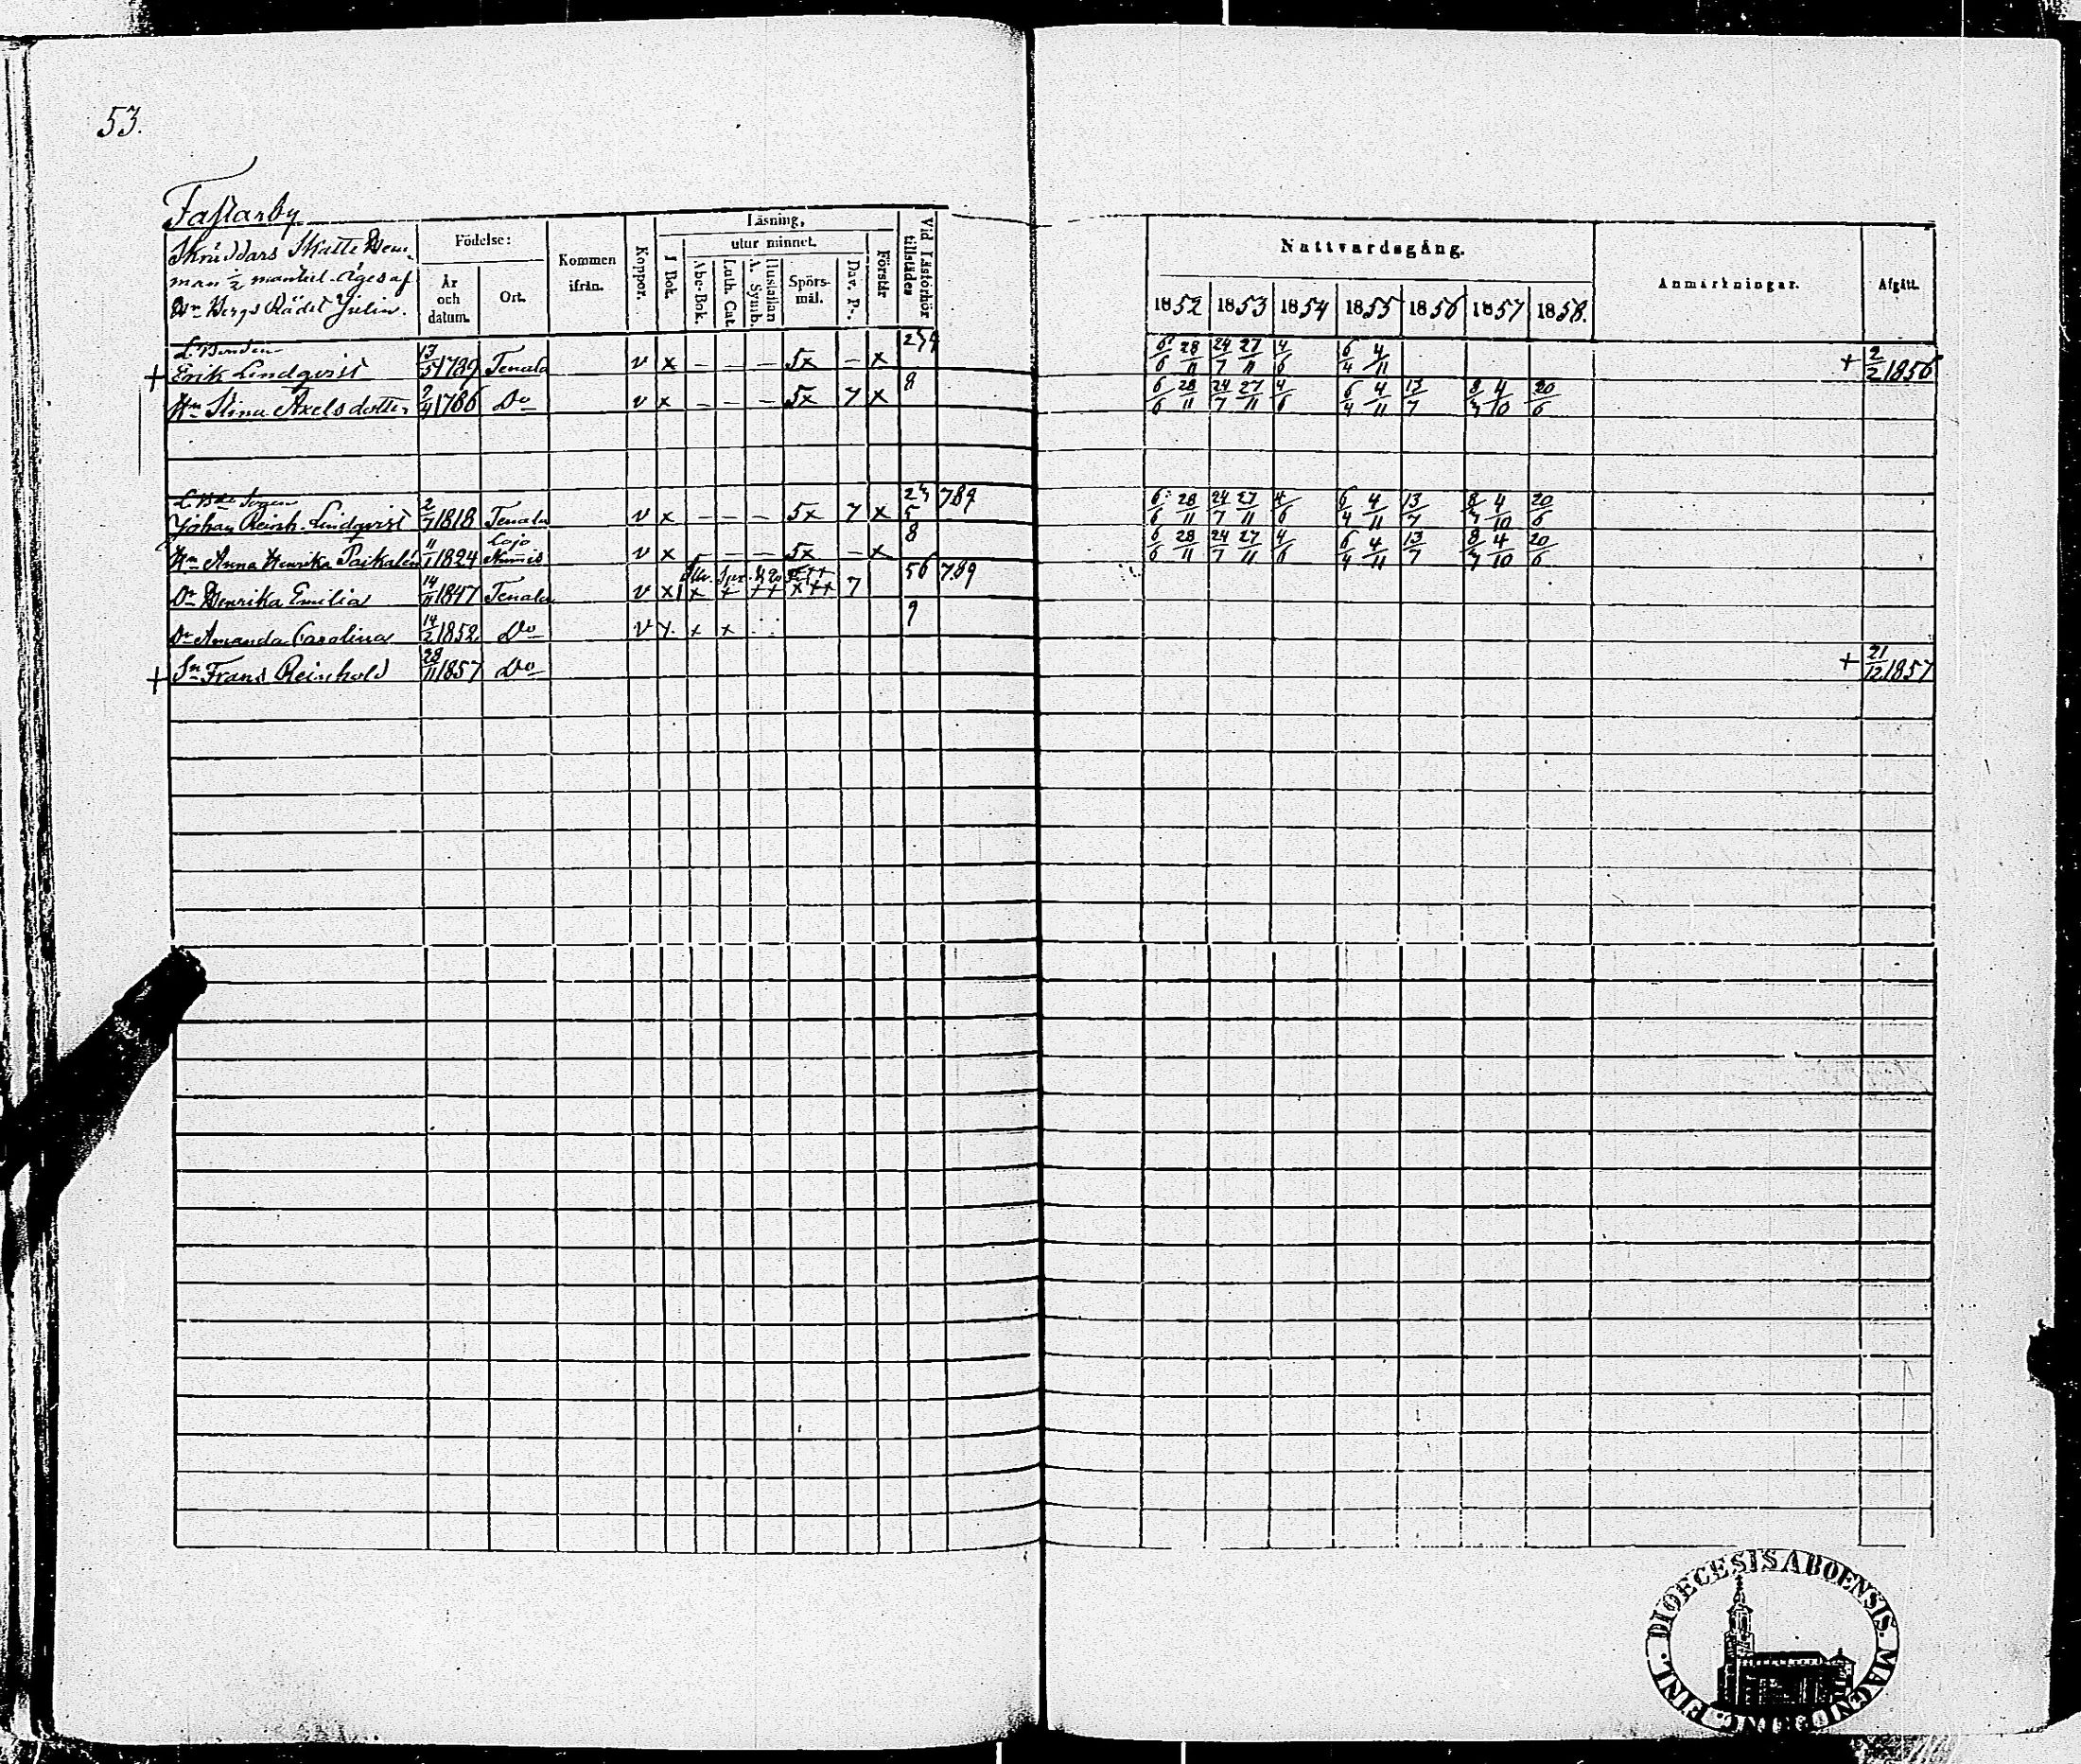 53.
Fastarby
Skräddars Skatte Hem-
man 1/2 mantel. Äges af
Hr Bergs Rådet Julin.
Födelse:
År och datum.
Ort.
Kommen ifrån.
Koppor.
Läsning,
I Bok.
utur minnet.
Abc-Bok.
Luth. Cat.
Hustaflan A. Symb.
Spörs-mål.
Dav. P-.
Förstår
Vid Läsförhör tillstädes
Nattvardsgång.
1852 1853 1854 1855 1856 1857 1858.
Anmärkningar.
Afgått.
L. Bonden
+ Erik Lindqvist 13/5 1789 Tenala v x – – – 5x – x 6/6 28/11 24/7 27/11 4/6 6/4 4/11 + 2/2 1856
Hu Stina Axelsdotter 2/4 1786 Do v x – – – 5x 7 x 8 6/6 28/11 24/7 27/11 4/6 6/4 4/11 13/7 4/10 20/6
Johan Reinh. Lindqvist 2/7 1818 Tenala v x – – – 5x 7 x 5 789 6/6 28/11 24/7 27/11 4/6 6/4 4/11 13/7 4/10 20/6
Lojo
Hu Anna Henrika Paikalén 11/1 1824 Nummis v x – – – 5x – x 8 6/6 28/11 24/7 27/11 4/6 6/4 4/11 13/7 4/10 20/6
Dr Henrika Emilia 14/11 1847 Tenala v x 7 56 789
Dr Amanda Carolina 14/2 1852 Do v x x 9
+ Sn Frans Reinhold 28/11 1857 Do + 21/12 1857
DIOECESIS ABOENSIS. MAGNI DUC. FINL.